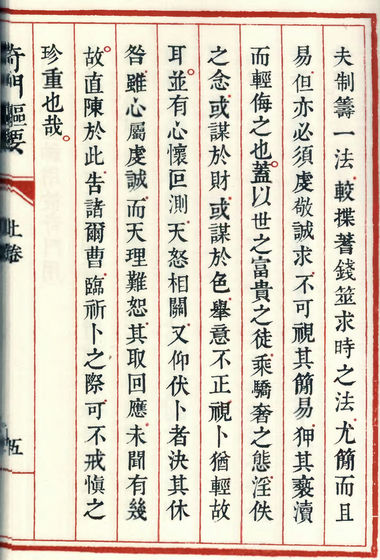 夫制籌一法較揲蓍錢筮求時之法尤簡而且
易但亦必須虔敬誠求不可視其簡易狎其褻瀆
而輕侮之也蓋以世之富貴之徒乘驕奢之態淫佚
之念或謀於財或謀於色舉意不正視卜猶輕故
耳並有心懷叵測天怒相關又仰伏卜者決其休
咎雖心屬虔誠而天理難恕其取回應未聞有幾
故直陳於此告諸爾曹臨祈卜之際可不戒慎之
珍重也哉
奇門樞要
上卷
五